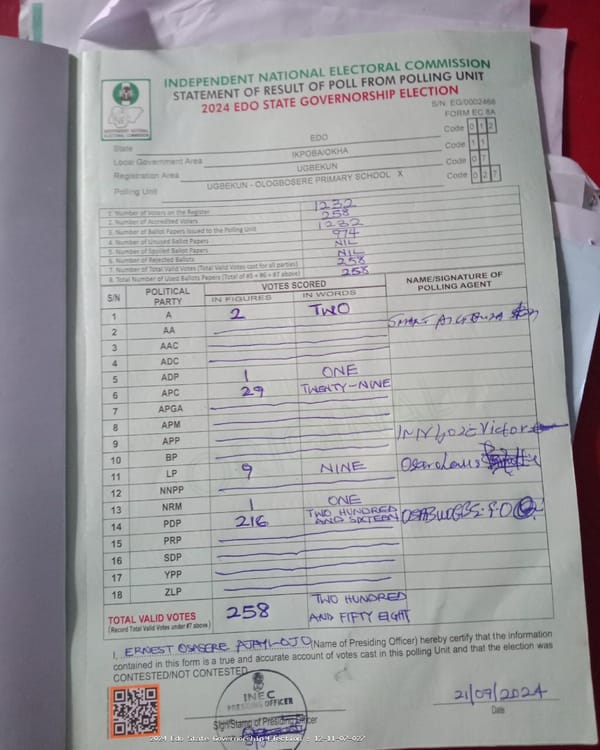 INDEPENDENT NATIONAL ELECTORAL COMMISSION
STATEMENT OF RESULT OF POLL FROM POLLING UNIT
2024 EDO STATE GOVERNORSHIP ELECTION
S/N: EG/0002466
FORM EC 8A
INDEPENDENT NATIONAL ELECTORAL COMMISSION
State EDO Code 0 1 2
Local Government Area IKPOBA/OKHA Code 1 1
Registration Area UGBEKUN Code 0 7
Polling Unit UGBEKUN - OLOGBOSERE PRIMARY SCHOOL X Code 0 2 7
1. Number of Voters on the Register 1232
2. Number of Accredited Voters 258
3. Number of Ballot Papers Issued to the Polling Unit 1232
4. Number of Unused Ballot Papers 974
5. Number of Spoiled Ballot Papers NIL
6. Number of Rejected Ballots NIL
7. Number of Total Valid Votes (Total Valid Votes cast for all parties) 258
8. Total Number of Used Ballots Papers (Total of #5 + #6 + #7 above) 258
S/N POLITICAL PARTY VOTES SCORED NAME/SIGNATURE OF POLLING AGENT
IN FIGURES IN WORDS
1 A 2 TWO
2 AA
3 AAC
4 ADC
5 ADP 1 ONE
6 APC 29 TWENTY-NINE
7 APGA
8 APM
9 APP
10 BP Victor
11 LP 9 NINE
12 NNPP
13 NRM 1 ONE
14 PDP 216 TWO HUNDRED AND SIXTEEN
15 PRP
16 SDP
17 YPP
18 ZLP
TOTAL VALID VOTES 258 TWO HUNDRED AND FIFTY EIGHT
(Record Total Valid Votes under #7 above)
I, ERNEST OSASERE AJAYI-OJO (Name of Presiding Officer) hereby certify that the information
contained in this form is a true and accurate account of votes cast in this polling Unit and that the election was
CONTESTED/NOT CONTESTED
INEC
PRESIDING OFFICER
21/09/2024
Sign/Stamp of Presiding Officer
Date
2024 Edo State Governorship Election : 12-11-07-027